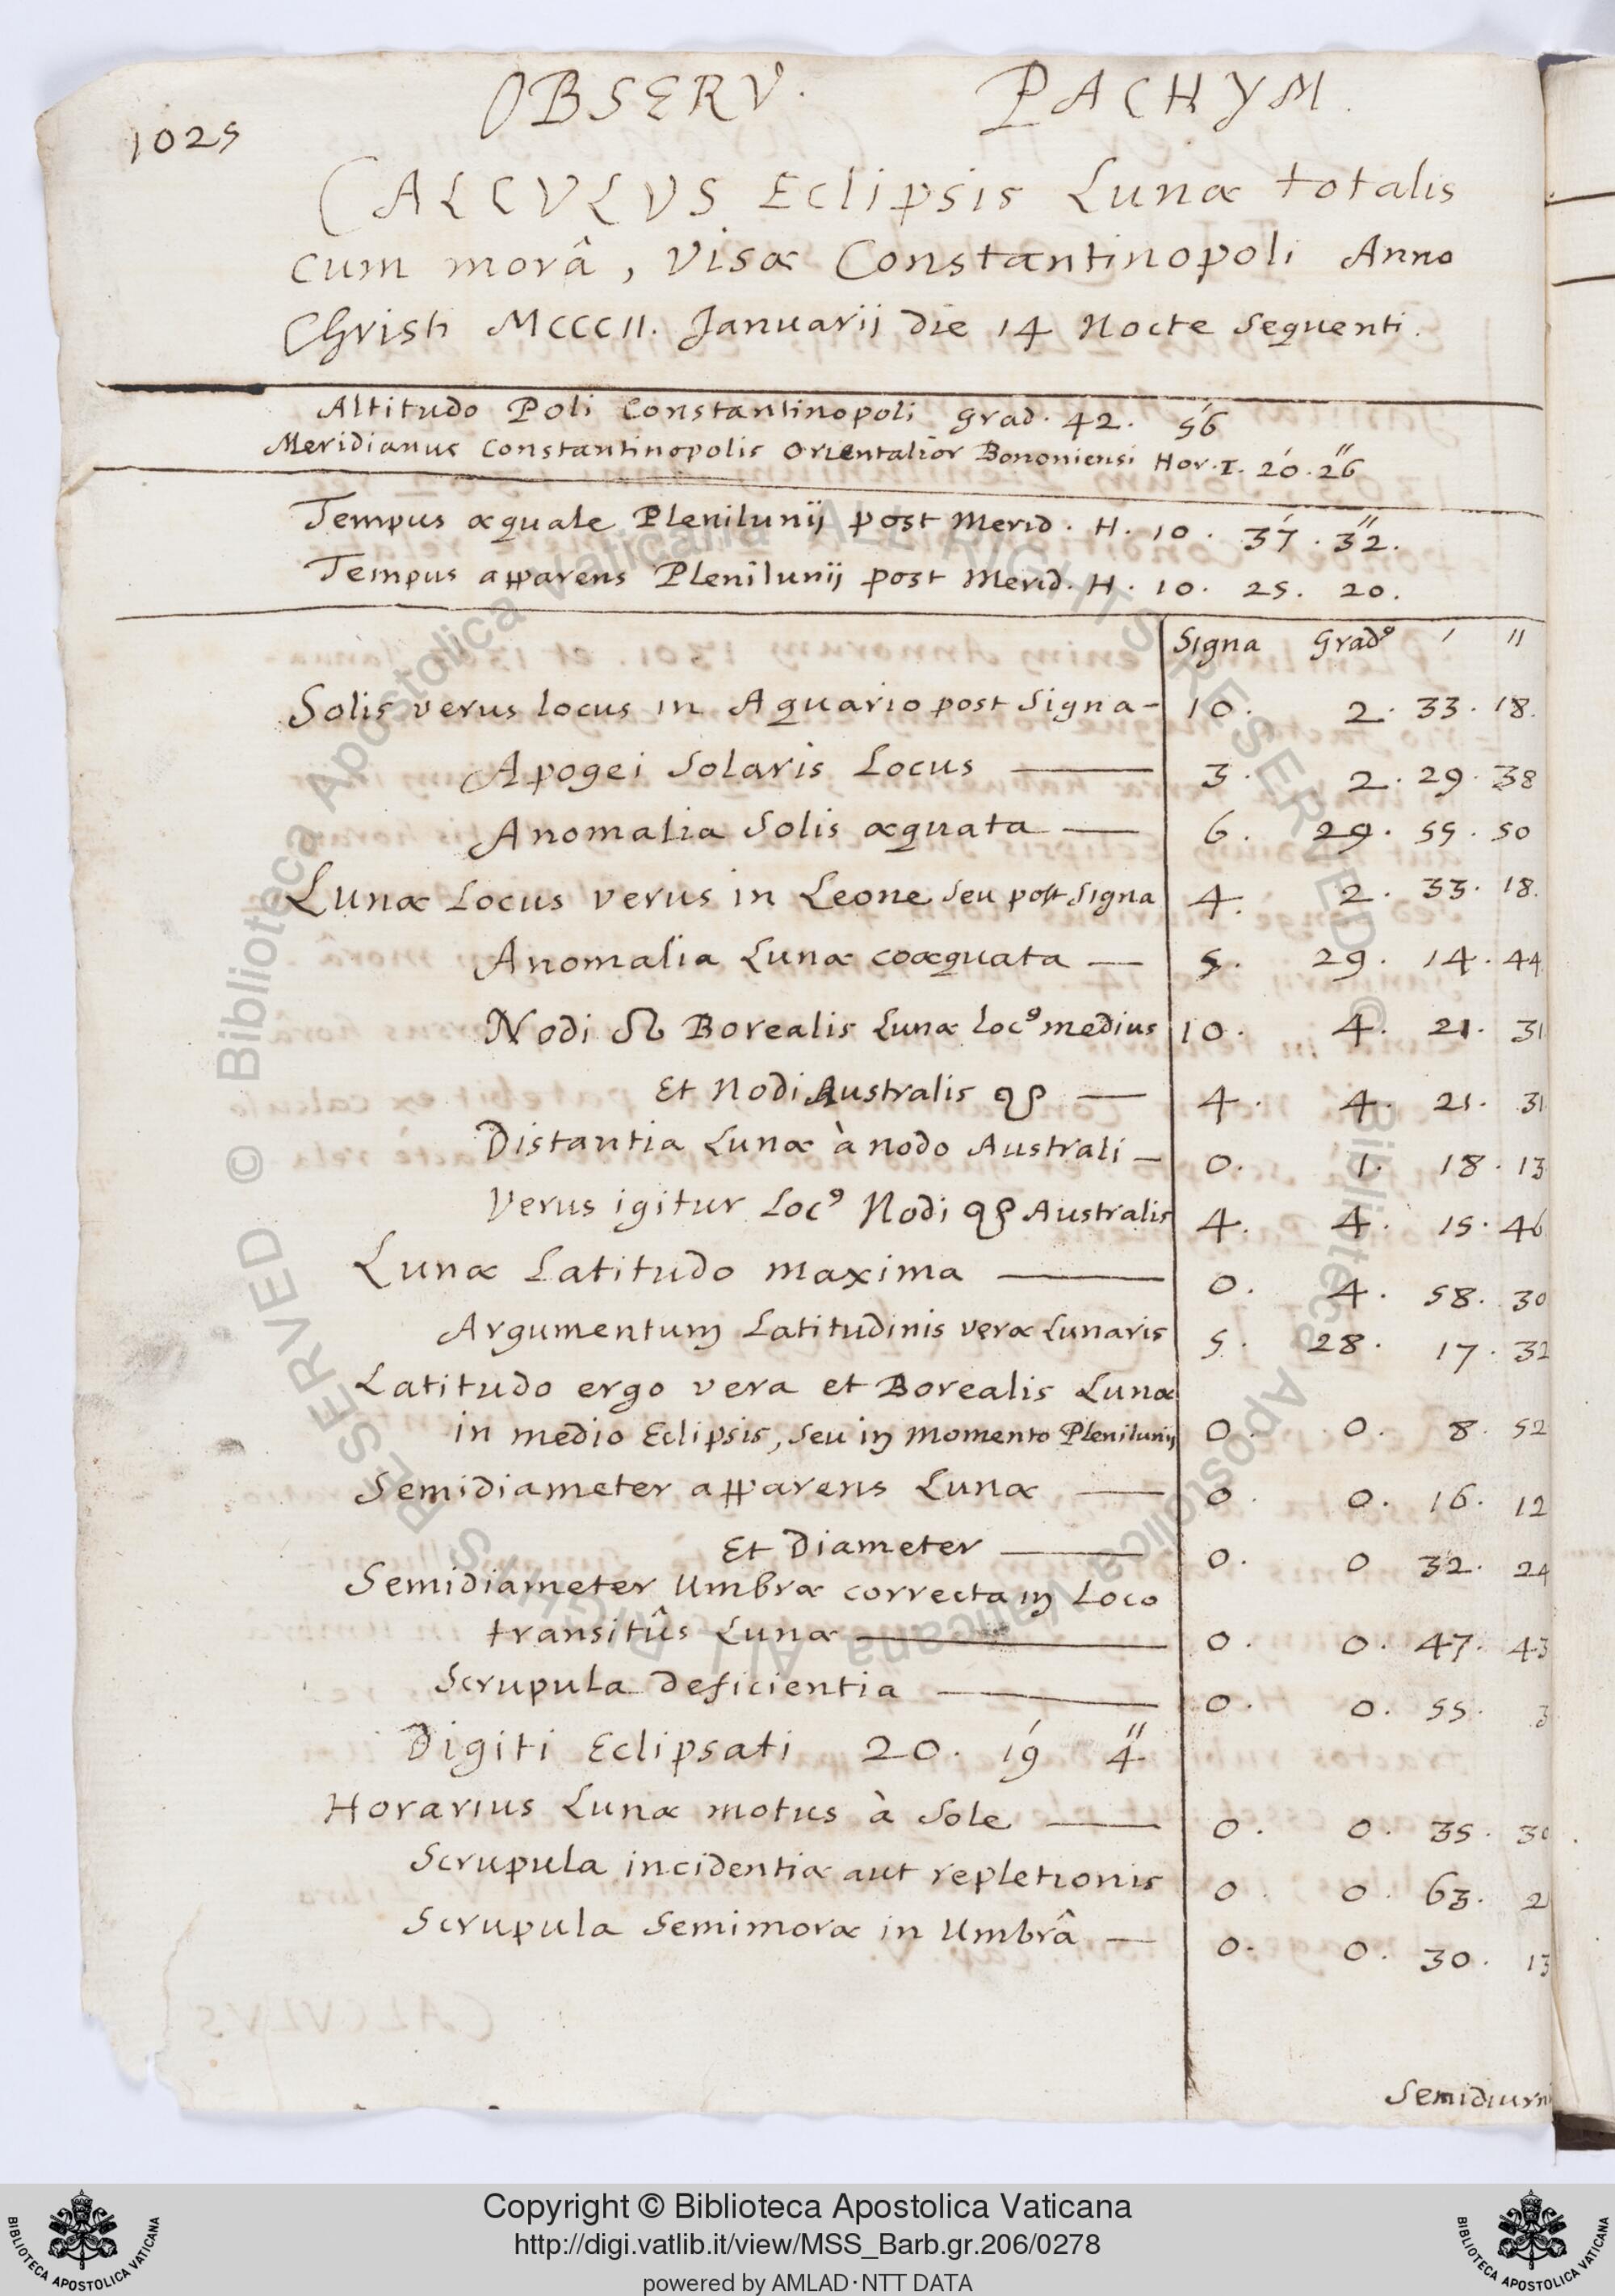 OBSERV. PACHYM.
1025
CALCVLVS Eclipsis Lunæ totalis
cum morâ, visæ Constantinopoli Anno
Christi MCCCII. Januarij die 14 Nocte sequenti.
Altitudo Poli Constantinopoli grad. 42. 56′
Meridianus Constantinopolis Orientalior Bononiensi Hor. I. 20′. 26″
Tempus æquale Plenilunij post Merid. H. 10. 37′. 32″.
Tempus apparens Plenilunij post Merid. H. 10. 25. 20.
Signa Gradꝰ ′ ″
Solis verus locus in Aquario post Signa - 10. 2. 33. 18.
Apogei Solaris Locus — 3. 2. 29. 38
Anomalia Solis æquata — 6. 29. 55. 50
Lunæ Locus verus in Leone seu post Signa 4. 2. 33. 18.
Anomalia Lunæ coæquata — 5. 29. 14. 44
Nodi ☊ Borealis Lunæ Locꝰ medius 10. 4. 21. 31
Et Nodi Australis ☋ — 4. 4. 21. 31
Distantia Lunæ à nodo Australi — 0. 1. 18. 13
Verus igitur Locꝰ Nodi ☋ Australis 4. 4. 15. 46
Lunæ Latitudo maxima — 0. 4. 58. 30
Argumentum Latitudinis veræ Lunaris 5. 28. 17. 32
Latitudo ergo vera et Borealis Lunæ
in medio Eclipsis, seu in Momento Plenilunij 0. 0. 8. 52
Semidiameter apparens Lunæ — 0. 0. 16. 12
Et Diameter — 0. 0 32. 24
Semidiameter Umbræ correcta in Loco
transitûs Lunæ — 0. 0. 47. 43
Scrupula deficientia — 0. 0. 55. 3
Digiti Eclipsati 20. 19′ 4″
Horarius Lunæ motus à Sole — 0. 0. 35. 30
Scrupula incidentiæ aut repletionis 0. 0. 63. 2
Scrupula Semimoræ in Umbrâ — 0. 0. 30. 13
Semidiurni
© Biblioteca Apostolica Vaticana ALL RIGHTS RESERVED © Biblioteca Apostolica Vaticana ALL RIGHTS RESERVED
BIBLIOTECA APOSTOLICA VATICANA
Copyright © Biblioteca Apostolica Vaticana
http://digi.vatlib.it/view/MSS_Barb.gr.206/0278
powered by AMLAD·NTT DATA
BIBLIOTECA APOSTOLICA VATICANA